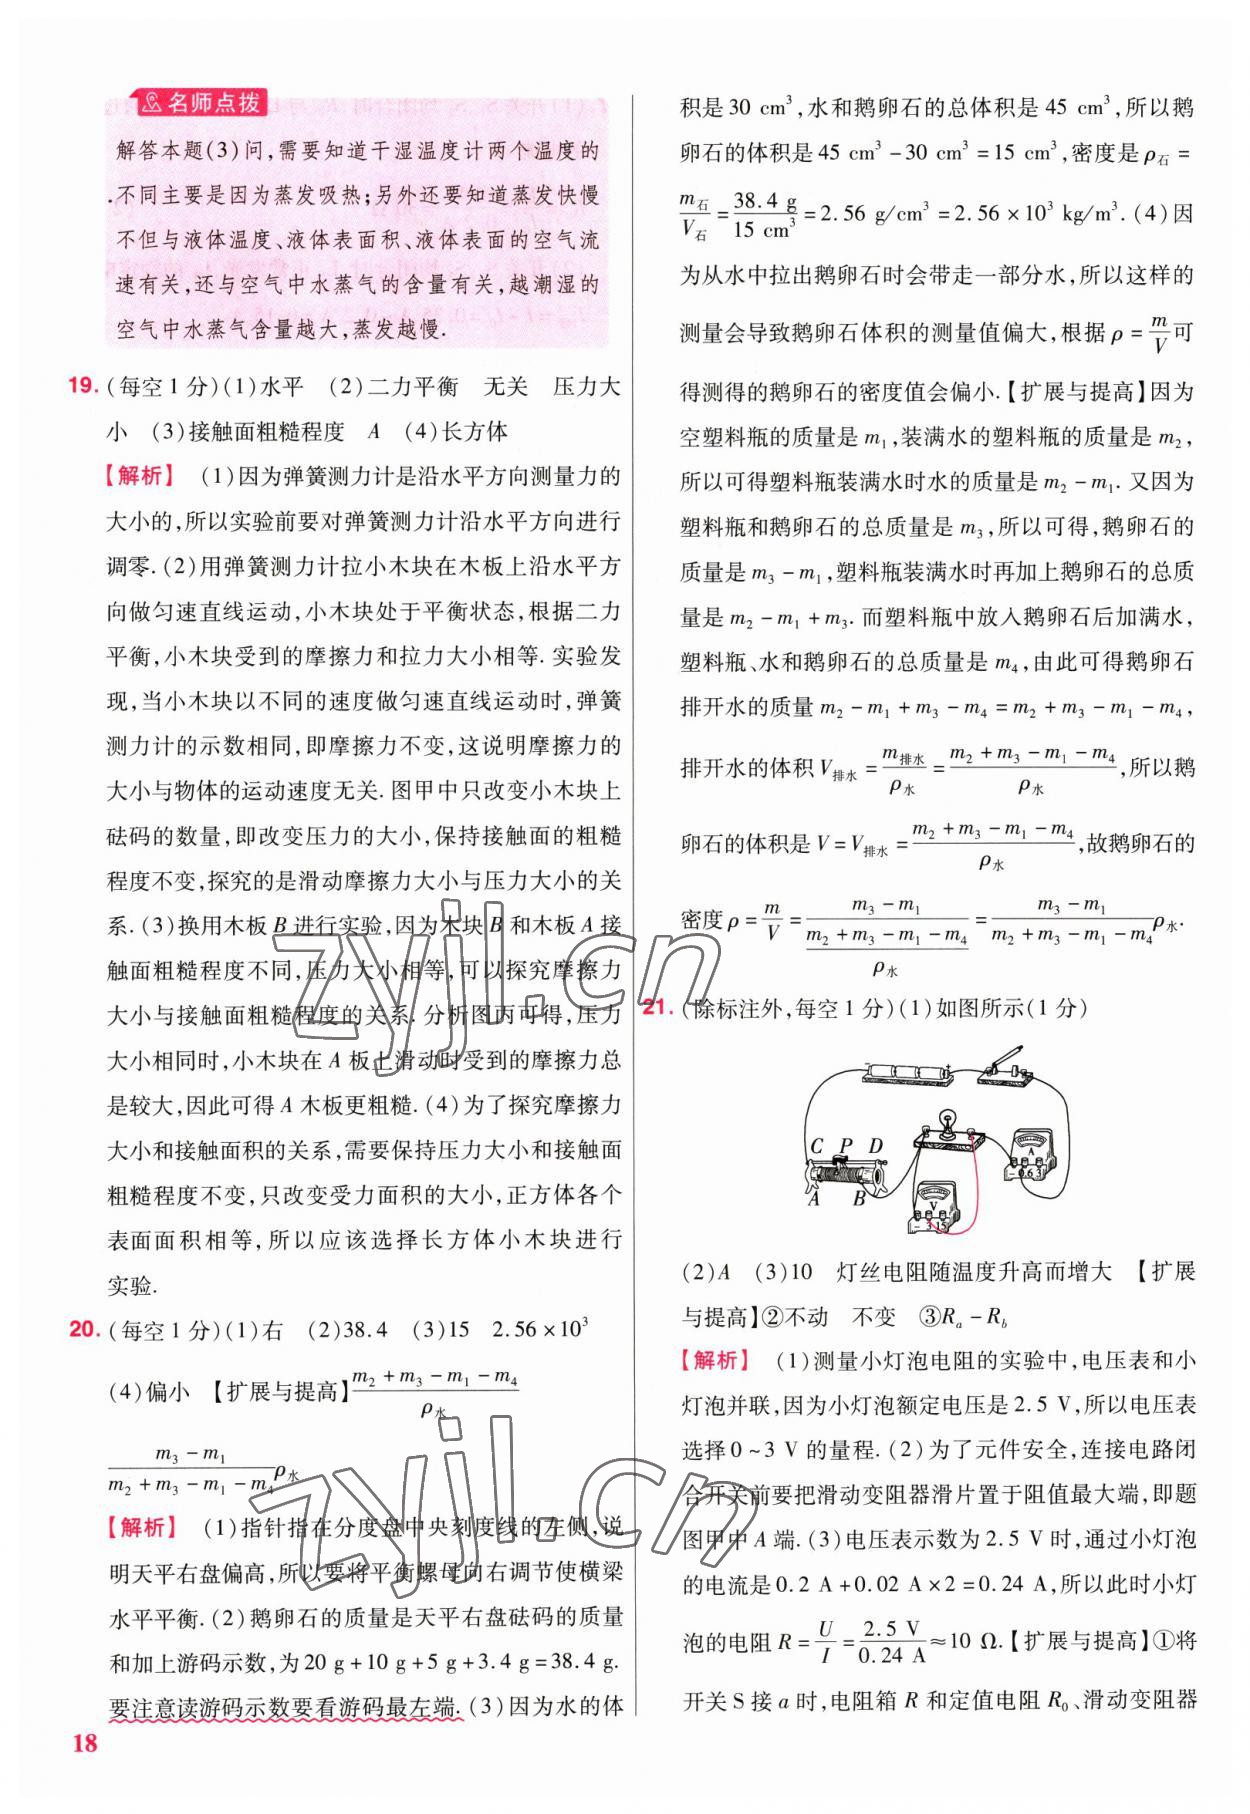 名师点拨
解答本题(3)问,需要知道干湿温度计两个温度的
不同主要是因为蒸发吸热;另外还要知道蒸发快慢
不但与液体温度、液体表面积、液体表面的空气流
速有关,还与空气中水蒸气的含量有关,越潮湿的
空气中水蒸气含量越大,蒸发越慢.
19. (每空1分)(1)水平 (2)二力平衡 无关 压力大
小 (3)接触面粗糙程度 A (4)长方体
【解析】 (1)因为弹簧测力计是沿水平方向测量力的
大小的,所以实验前要对弹簧测力计沿水平方向进行
调零. (2)用弹簧测力计拉小木块在木板上沿水平方
向做匀速直线运动,小木块处于平衡状态,根据二力
平衡,小木块受到的摩擦力和拉力大小相等. 实验发
现,当小木块以不同的速度做匀速直线运动时,弹簧
测力计的示数相同,即摩擦力不变,这说明摩擦力的
大小与物体的运动速度无关. 图甲中只改变小木块上
砝码的数量,即改变压力的大小,保持接触面的粗糙
程度不变,探究的是滑动摩擦力大小与压力大小的关
系. (3)换用木板 B 进行实验,因为木块 B 和木板 A 接
触面粗糙程度不同,压力大小相等,可以探究摩擦力
大小与接触面粗糙程度的关系. 分析图丙可得,压力
大小相同时,小木块在 A 板上滑动时受到的摩擦力总
是较大,因此可得 A 木板更粗糙. (4)为了探究摩擦力
大小和接触面积的关系,需要保持压力大小和接触面
粗糙程度不变,只改变受力面积的大小,正方体各个
表面面积相等,所以应该选择长方体小木块进行
实验.
20. (每空1分)(1)右 (2)38.4 (3)15 2.56×10³
(4)偏小 【扩展与提高】(m₂+m₃−m₁−m₄)/ρ水
(m₃−m₁)/(m₂+m₃−m₁−m₄)ρ水
【解析】 (1)指针指在分度盘中央刻度线的左侧,说
明天平右盘偏高,所以要将平衡螺母向右调节使横梁
水平平衡. (2)鹅卵石的质量是天平右盘砝码的质量
和加上游码示数,为20 g+10 g+5 g+3.4 g=38.4 g.
要注意读游码示数要看游码最左端. (3)因为水的体
18
积是30 cm³,水和鹅卵石的总体积是45 cm³,所以鹅
卵石的体积是45 cm³−30 cm³=15 cm³,密度是ρ石=
m石/V石=38.4 g/15 cm³=2.56 g/cm³=2.56×10³ kg/m³. (4)因
为从水中拉出鹅卵石时会带走一部分水,所以这样的
测量会导致鹅卵石体积的测量值偏大,根据ρ=m/V可
得测得的鹅卵石的密度值会偏小.【扩展与提高】因为
空塑料瓶的质量是m₁,装满水的塑料瓶的质量是m₂,
所以可得塑料瓶装满水时水的质量是m₂−m₁. 又因为
塑料瓶和鹅卵石的总质量是m₃,所以可得,鹅卵石的
质量是m₃−m₁,塑料瓶装满水时再加上鹅卵石的总质
量是m₂−m₁+m₃. 而塑料瓶中放入鹅卵石后加满水,
塑料瓶、水和鹅卵石的总质量是m₄,由此可得鹅卵石
排开水的质量m₂−m₁+m₃−m₄=m₂+m₃−m₁−m₄,
排开水的体积V排水=m排水/ρ水=(m₂+m₃−m₁−m₄)/ρ水,所以鹅
卵石的体积是V=V排水=(m₂+m₃−m₁−m₄)/ρ水,故鹅卵石的
密度ρ=m/V=(m₃−m₁)/((m₂+m₃−m₁−m₄)/ρ水)=(m₃−m₁)/(m₂+m₃−m₁−m₄)ρ水.
21. (除标注外,每空1分)(1)如图所示(1分)
C P D
A B
A
− 0.6 3
V
− 3 15
(2)A (3)10 灯丝电阻随温度升高而增大 【扩展
与提高】②不动 不变 ③Rₐ−R_b
【解析】 (1)测量小灯泡电阻的实验中,电压表和小
灯泡并联,因为小灯泡额定电压是2.5 V,所以电压表
选择0~3 V的量程. (2)为了元件安全,连接电路闭
合开关前要把滑动变阻器滑片置于阻值最大端,即题
图甲中A端. (3)电压表示数为2.5 V时,通过小灯泡
的电流是0.2 A+0.02 A×2=0.24 A,所以此时小灯
泡的电阻R=U/I=2.5 V/0.24 A≈10 Ω.【扩展与提高】①将
开关S接a时,电阻箱R和定值电阻R₀、滑动变阻器
zyjl.cn
zyjl.cn